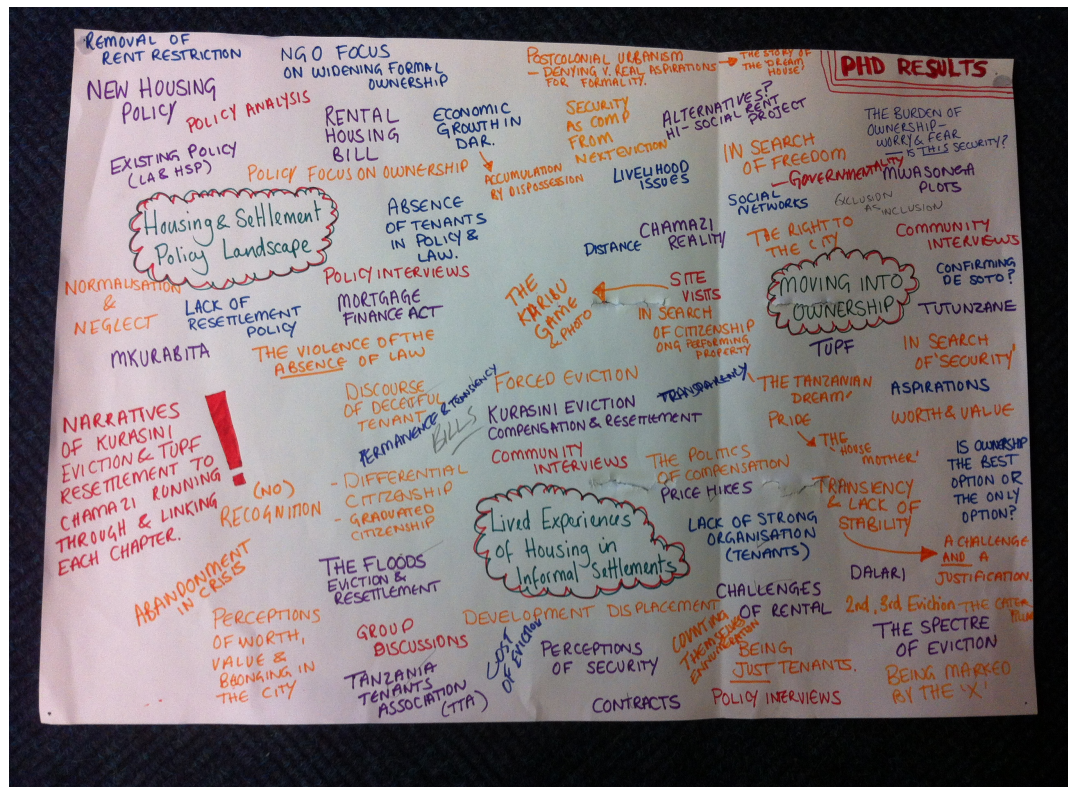 REMOVAL OF
RENT RESTRICTION
NGO FOCUS
ON WIDENING FORMAL
OWNERSHIP
POSTCOLONIAL URBANISM
- DENYING V. REAL ASPIRATIONS
FOR FORMALITY.
THE STORY OF
THE DREAM
HOUSE?
PHD RESULTS
NEW HOUSING
POLICY
POLICY ANALYSIS
RENTAL
HOUSING
BILL
ECONOMIC
GROWTH IN
DAR.
SECURITY
AS COMP
FROM
NEXT EVICTION
ALTERNATIVES?
HI-SOCIAL RENT
PROJECT
THE BURDEN OF
OWNERSHIP-
WORRY & FEAR
- IS THIS SECURITY?
EXISTING POLICY
(LA & HSP)
POLICY FOCUS ON OWNERSHIP
ACCUMULATION
BY DISPOSSESSION
LIVELIHOOD
ISSUES
IN SEARCH
OF FREEDOM
- GOVERNMENTALITY
MWASONGA
PLOTS
Housing & Settlement
Policy Landscape
ABSENCE
OF TENANTS
IN POLICY &
LAW.
DISTANCE
CHAMAZI
REALITY
SOCIAL
NETWORKS
EXCLUSION
AS INCLUSION
THE RIGHT TO
THE CITY
COMMUNITY
INTERVIEWS
NORMALISATION
&
NEGLECT
LACK OF
RESETTLEMENT
POLICY
POLICY INTERVIEWS
MORTGAGE
FINANCE ACT
THE
KARIBU
GAME
& PHOTO
SITE
VISITS
IN SEARCH
OF CITIZENSHIP
PERFORMING
PROPERTY
MOVING INTO
OWNERSHIP
CONFIRMING
DE SOTO?
TUTUNZANE
MKURABITA
THE VIOLENCE OF THE
ABSENCE OF LAW
TUPF
IN SEARCH
OF 'SECURITY'
NARRATIVES
OF KURASINI
EVICTION & TUPF
RESETTLEMENT TO
CHAMAZI RUNNING
THROUGH & LINKING
EACH CHAPTER.
!
DISCOURSE
OF DECEITFUL
TENANT
PERMANENCE & TRANSIENCY
BILLS
FORCED EVICTION
KURASINI EVICTION
COMPENSATION & RESETTLEMENT
TRANSPARENCY
THE TANZANIAN
DREAM?
PRIDE
THE
'HOUSE
MOTHER'
ASPIRATIONS
WORTH & VALUE
COMMUNITY
INTERVIEWS
THE POLITICS
OF COMPENSATION
PRICE HIKES
IS OWNERSHIP
THE BEST
OPTION OR
THE ONLY
OPTION?
(NO)
RECOGNITION
- DIFFERENTIAL
CITIZENSHIP
- GRADUATED
CITIZENSHIP
Lived Experiences
of Housing in
Informal Settlements
LACK OF STRONG
ORGANISATION
(TENANTS)
TRANSIENCY
& LACK OF
STABILITY
A CHALLENGE
AND A
JUSTIFICATION.
ABANDONMENT
IN CRISIS
THE FLOODS
EVICTION &
RESETTLEMENT
CHALLENGES
OF RENTAL
DALARI
2nd, 3rd Eviction
PERCEPTIONS
OF WORTH,
VALUE &
BELONGING IN
THE CITY
GROUP
DISCUSSIONS
DEVELOPMENT DISPLACEMENT
COST
OF EVICTION
PERCEPTIONS
OF SECURITY
COUNTING
THEMSELVES
BEING
JUST TENANTS.
THE SPECTRE
OF EVICTION
TANZANIA
TENANTS
ASSOCIATION
(TTA)
CONTRACTS
POLICY INTERVIEWS
BEING MARKED
BY THE 'X'